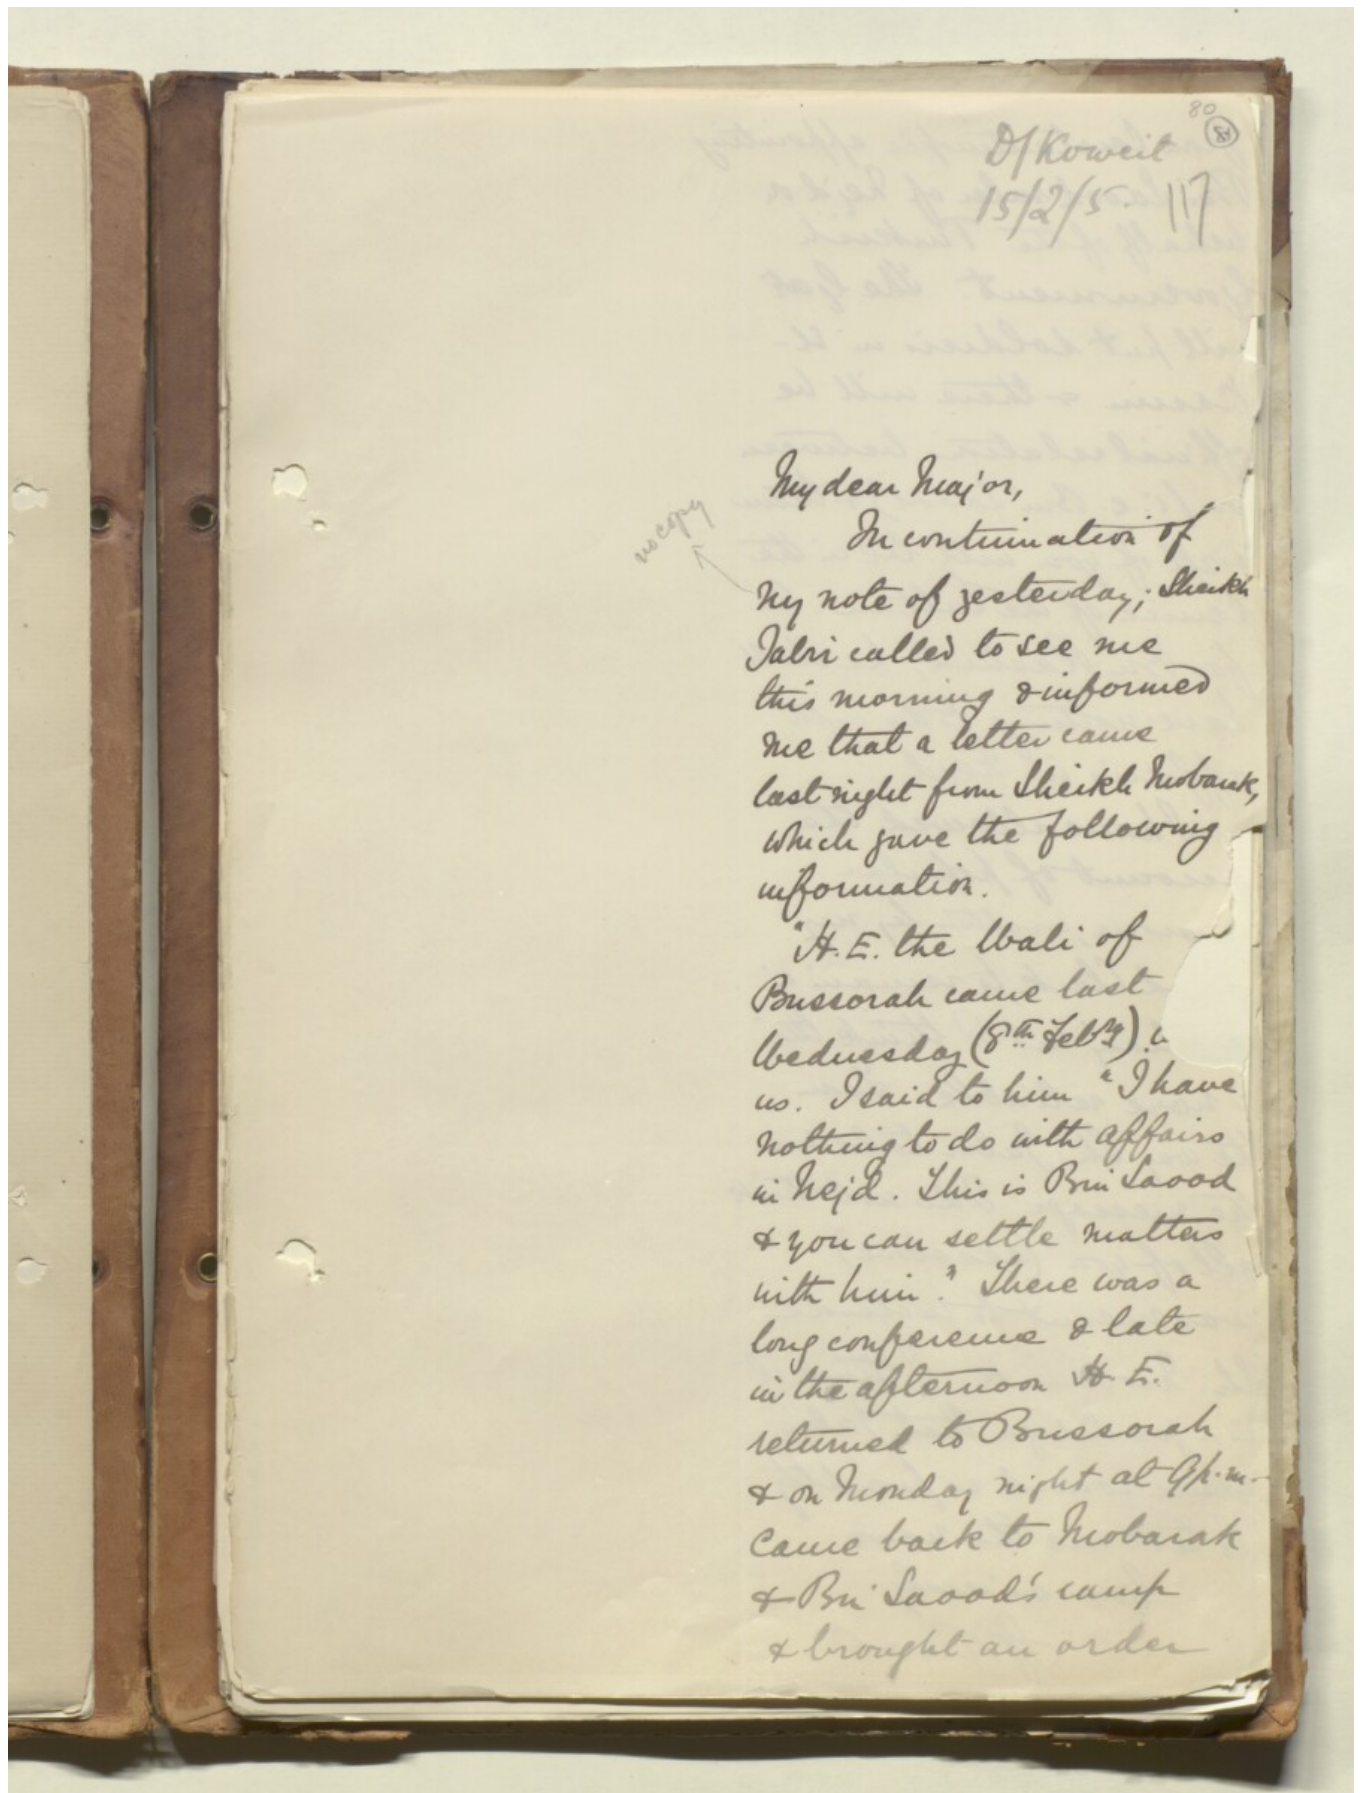 80
D/Koweit
15/2/5. 117
My dear Major,
In continuation of
no copy
my note of yesterday; Sheikh
Jabri called to see me
this morning & informed
me that a letter came
last night from Sheikh Mobarak,
which gave the following
information.
"H.E. the Wali of
Bussorah came last
Wednesday (8th Febry)
us. I said to him "I have
nothing to do with affairs
in Nejd. This is Bin Saood
& you can settle matters
with him". There was a
long conference & late
in the afternoon H.E.
returned to Bussorah
& on Monday night at 9 p.m.
came back to Mobarak
& Bin Saood's camp
& brought an order